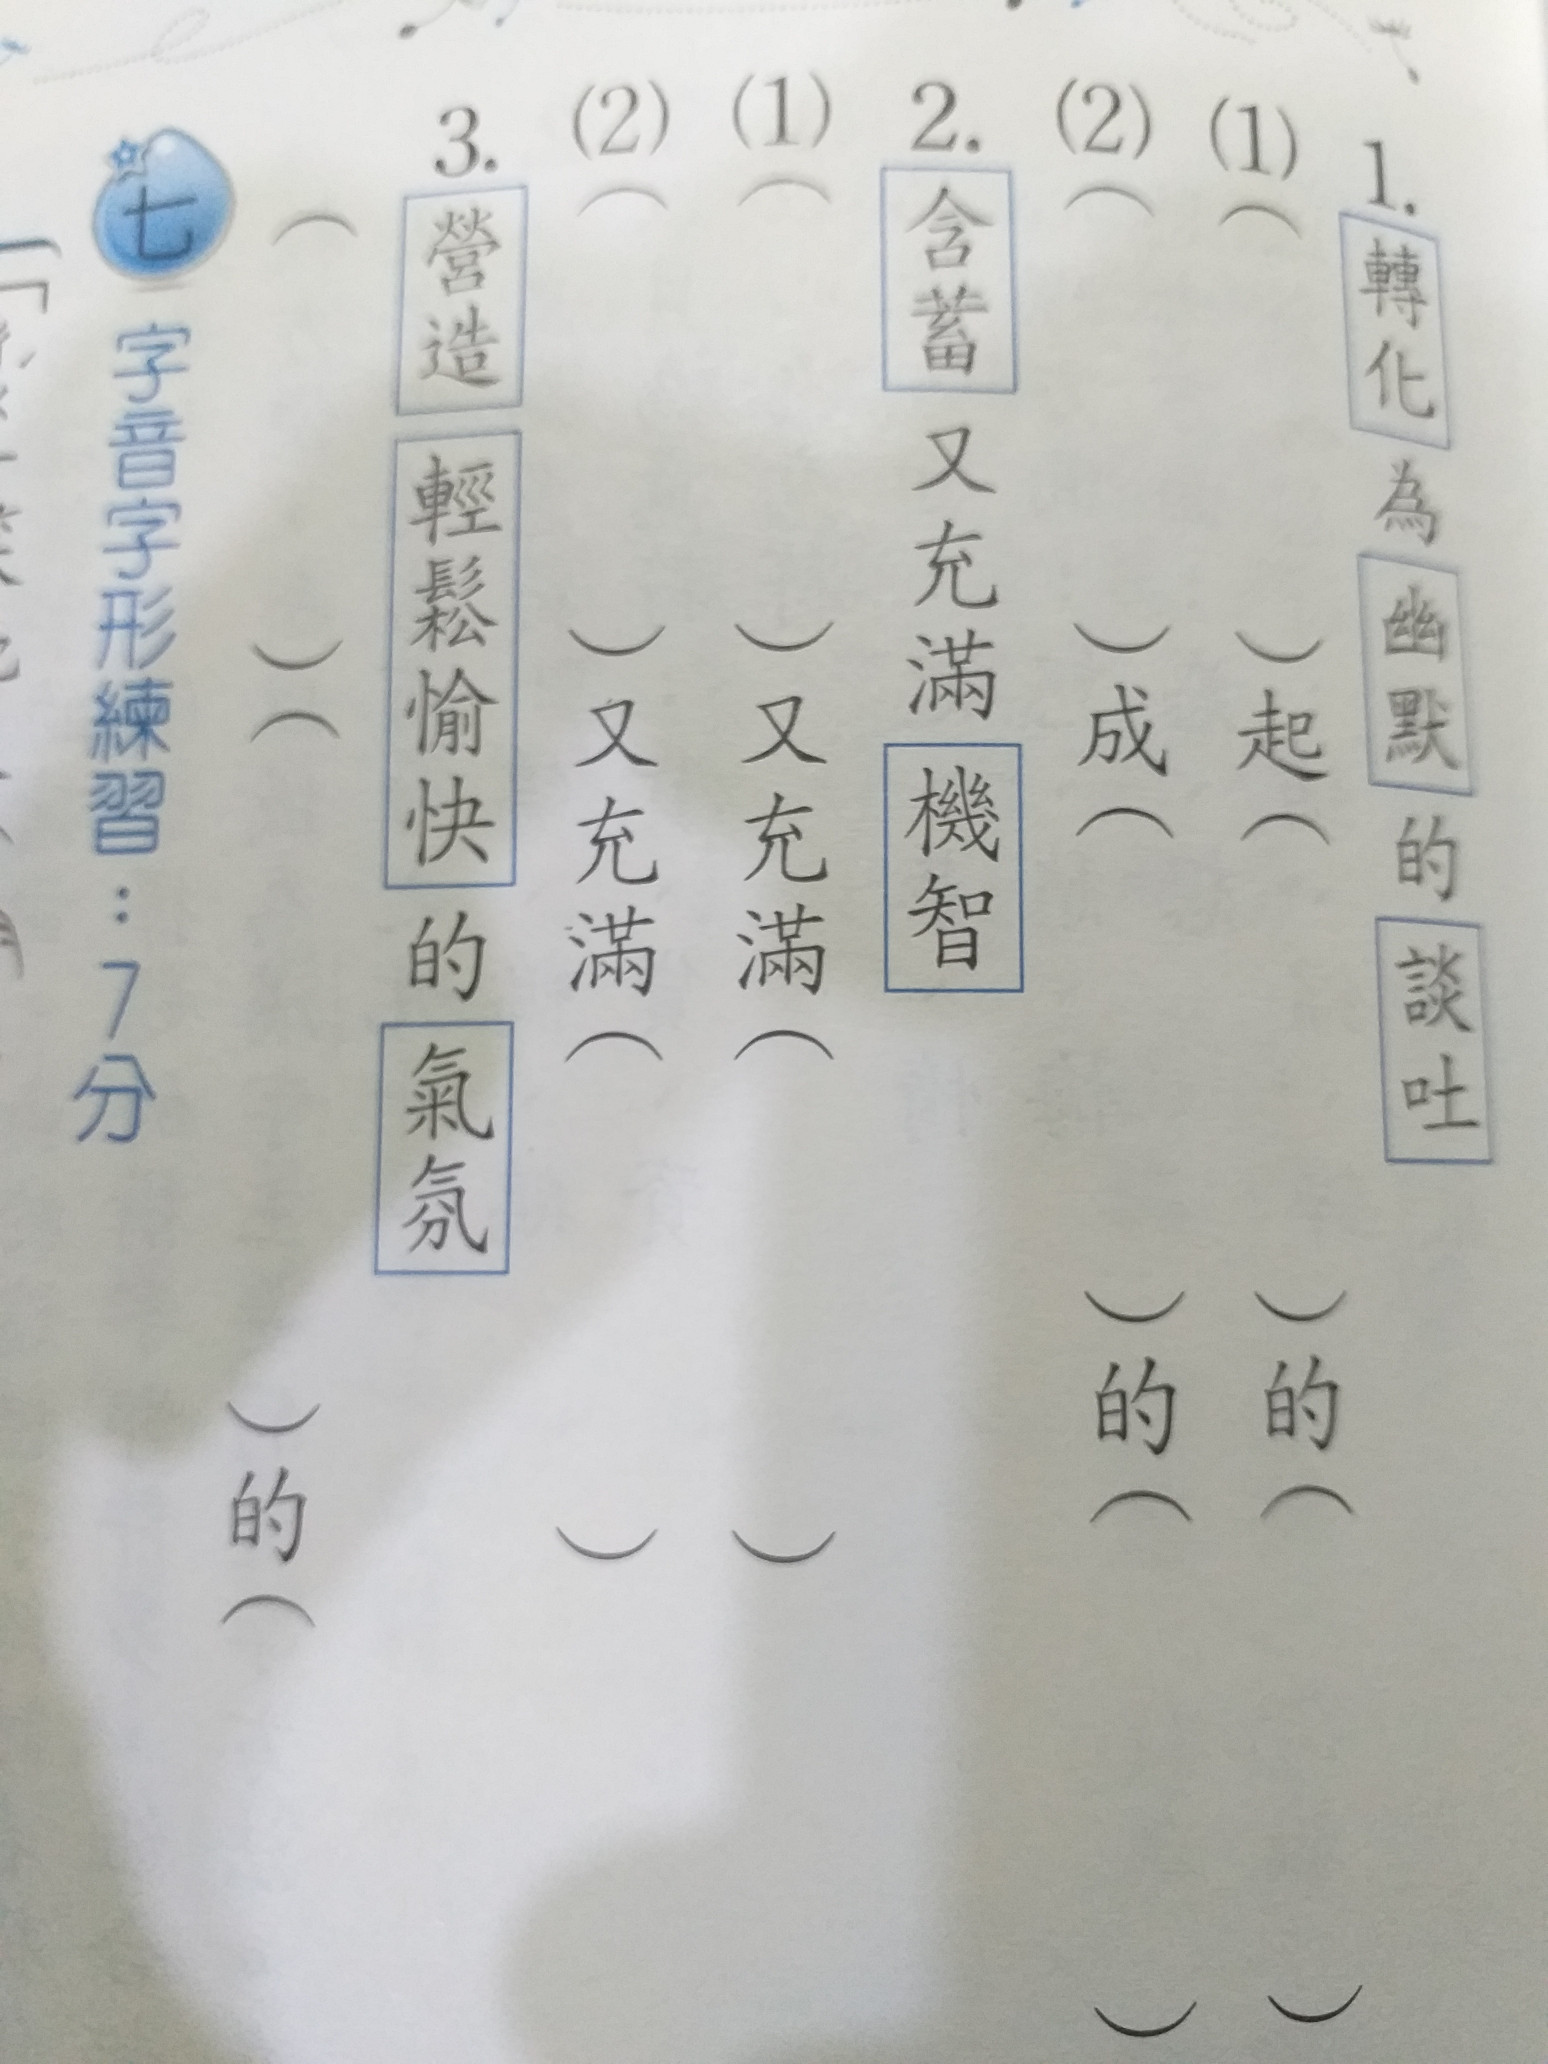 1.轉化為幽默的談吐
(1)( )起( )的( )
(2)( )成( )的( )
2.含蓄又充滿機智
(1)( )又充滿( )
(2)( )又充滿( )
3.營造輕鬆愉快的氣氛
( )( )的(
七 字音字形練習:7分